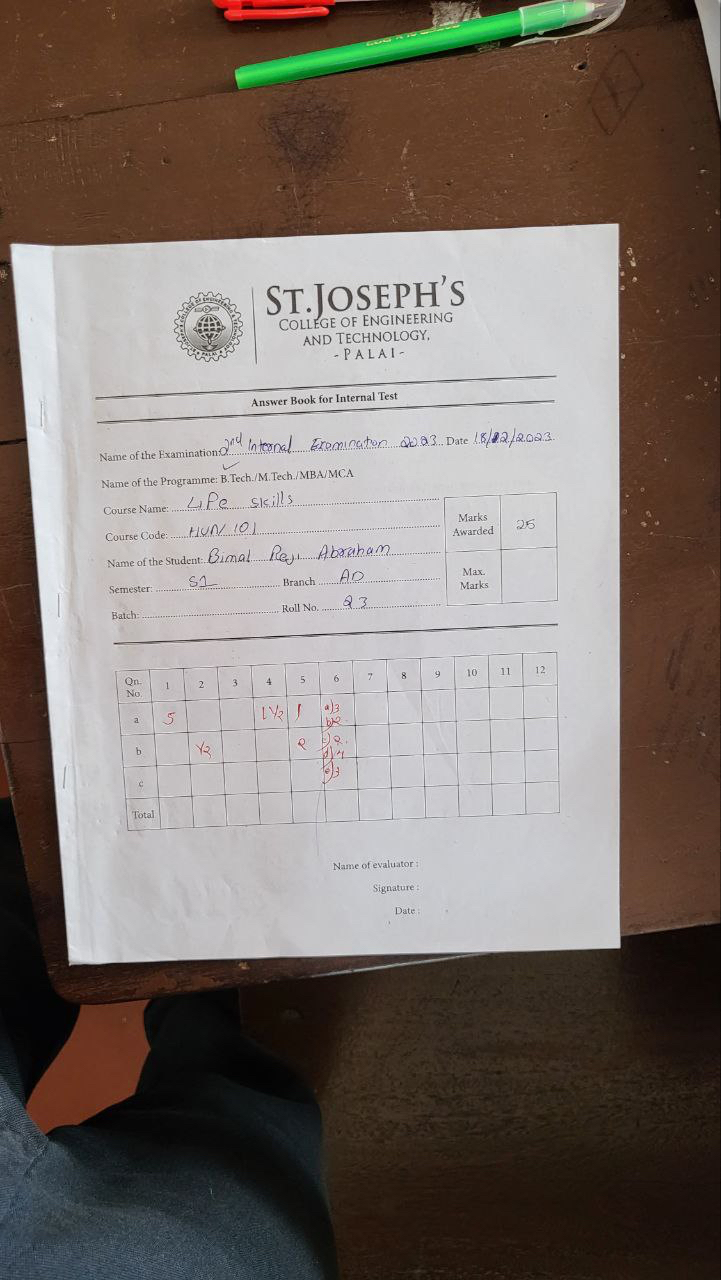 ST.JOSEPH'S
COLLEGE OF ENGINEERING
AND TECHNOLOGY,
- PALAI -
Answer Book for Internal Test
Name of the Examination: 2nd Internal Examination 2023 Date 18/12/2023
Name of the Programme: B.Tech./M.Tech./MBA/MCA
Course Name: Life skills
Course Code: HUN 101
Marks Awarded 25
Name of the Student: Bimal Reji Abraham
Semester: S1 Branch AD
Max. Marks
Batch: Roll No. 23
Qn. No. 1 2 3 4 5 6 7 8 9 10 11 12
a 5 1 1/2 1 a)3
b)2
b 1/2 2 c)2
c e)3
Total
Name of evaluator :
Signature :
Date :